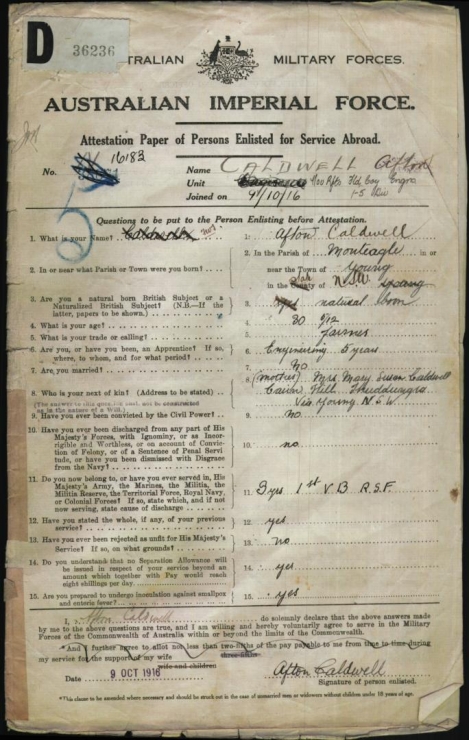 D 36236
AUSTRALIAN MILITARY FORCES.
AUSTRALIAN IMPERIAL FORCE.
Attestation Paper of Persons Enlisted for Service Abroad.
No. 16183
Name CALDWELL Afton
Unit Fld Coy Engrs
Joined on 9/10/16
Questions to be put to the Person Enlisting before Attestation.
1. What is your Name? 1. Afton Caldwell
2. In or near what Parish or Town were you born? 2. In the Parish of Monteagle in or
near the Town of Young
in the County of NSW
3. Are you a natural born British Subject or a
Naturalized British Subject? (N.B.—If the
latter, papers to be shown.) 3. natural born
4. What is your age? 4. 30
5. What is your trade or calling? 5. farmer
6. Are you, or have you been, an Apprentice? If so,
where, to whom, and for what period? 6. Engineering 5 years
7. Are you married? 7. No
8. Who is your next of kin? (Address to be stated) 8. (mother) Mrs Mary Susan Caldwell
Hill Thuddungra
Via Young. N.S.W
9. Have you ever been convicted by the Civil Power? 9. no
10. Have you ever been discharged from any part of His
Majesty's Forces, with Ignominy, or as Incor-
rigible and Worthless, or on account of Convic-
tion of Felony, or of a Sentence of Penal Servi-
tude, or have you been dismissed with Disgrace
from the Navy? 10. no
11. Do you now belong to, or have you ever served in, His
Majesty's Army, the Marines, the Militia, the
Militia Reserve, the Territorial Force, Royal Navy,
or Colonial Forces? If so, state which, and if not
now serving, state cause of discharge 11. 3 yrs 1st V B R.S.F.
12. Have you stated the whole, if any, of your previous
service? 12. yes
13. Have you ever been rejected as unfit for His Majesty's
Service? If so, on what grounds? 13. no
14. Do you understand that no Separation Allowance will
be issued in respect of your service beyond an
amount which together with Pay would reach
eight shillings per day. 14. yes
15. Are you prepared to undergo inoculation against smallpox
and enteric fever? 15. yes
I, Afton Caldwell do solemnly declare that the above answers made
by me to the above questions are true, and I am willing and hereby voluntarily agree to serve in the Military
Forces of the Commonwealth of Australia within or beyond the limits of the Commonwealth.
*And I further agree to allot not less than two-fifths of the pay payable to me from time to time during
my service for the support of my wife
wife and children
Date 9 OCT 1916 Afton Caldwell
Signature of person enlisted.
*This clause to be amended where necessary and should be struck out in the case of unmarried men or widowers without children under 18 years of age.